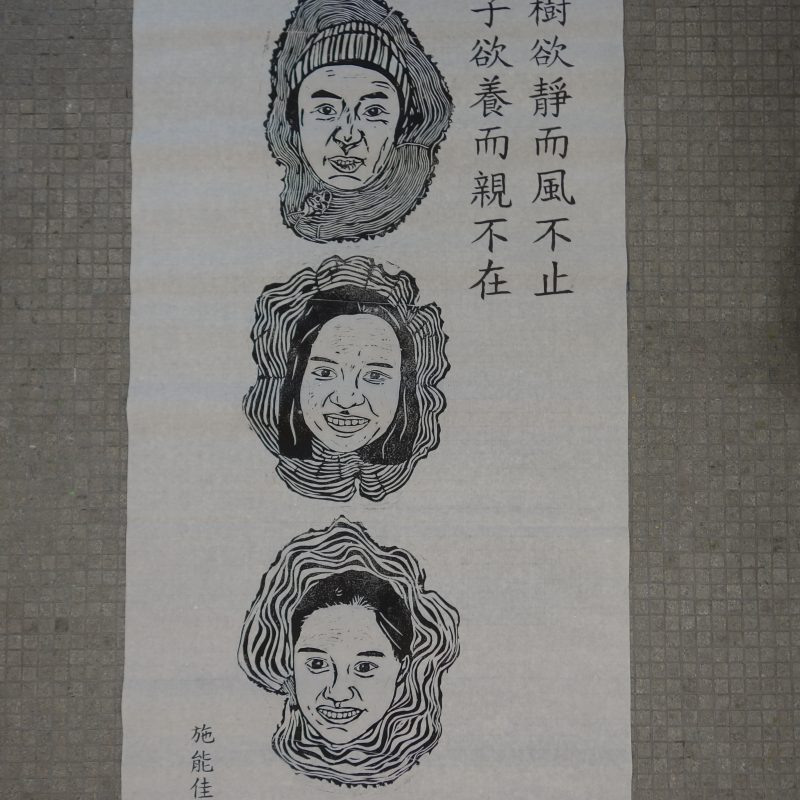 樹欲靜而風不止
子欲養而親不在
施能佳